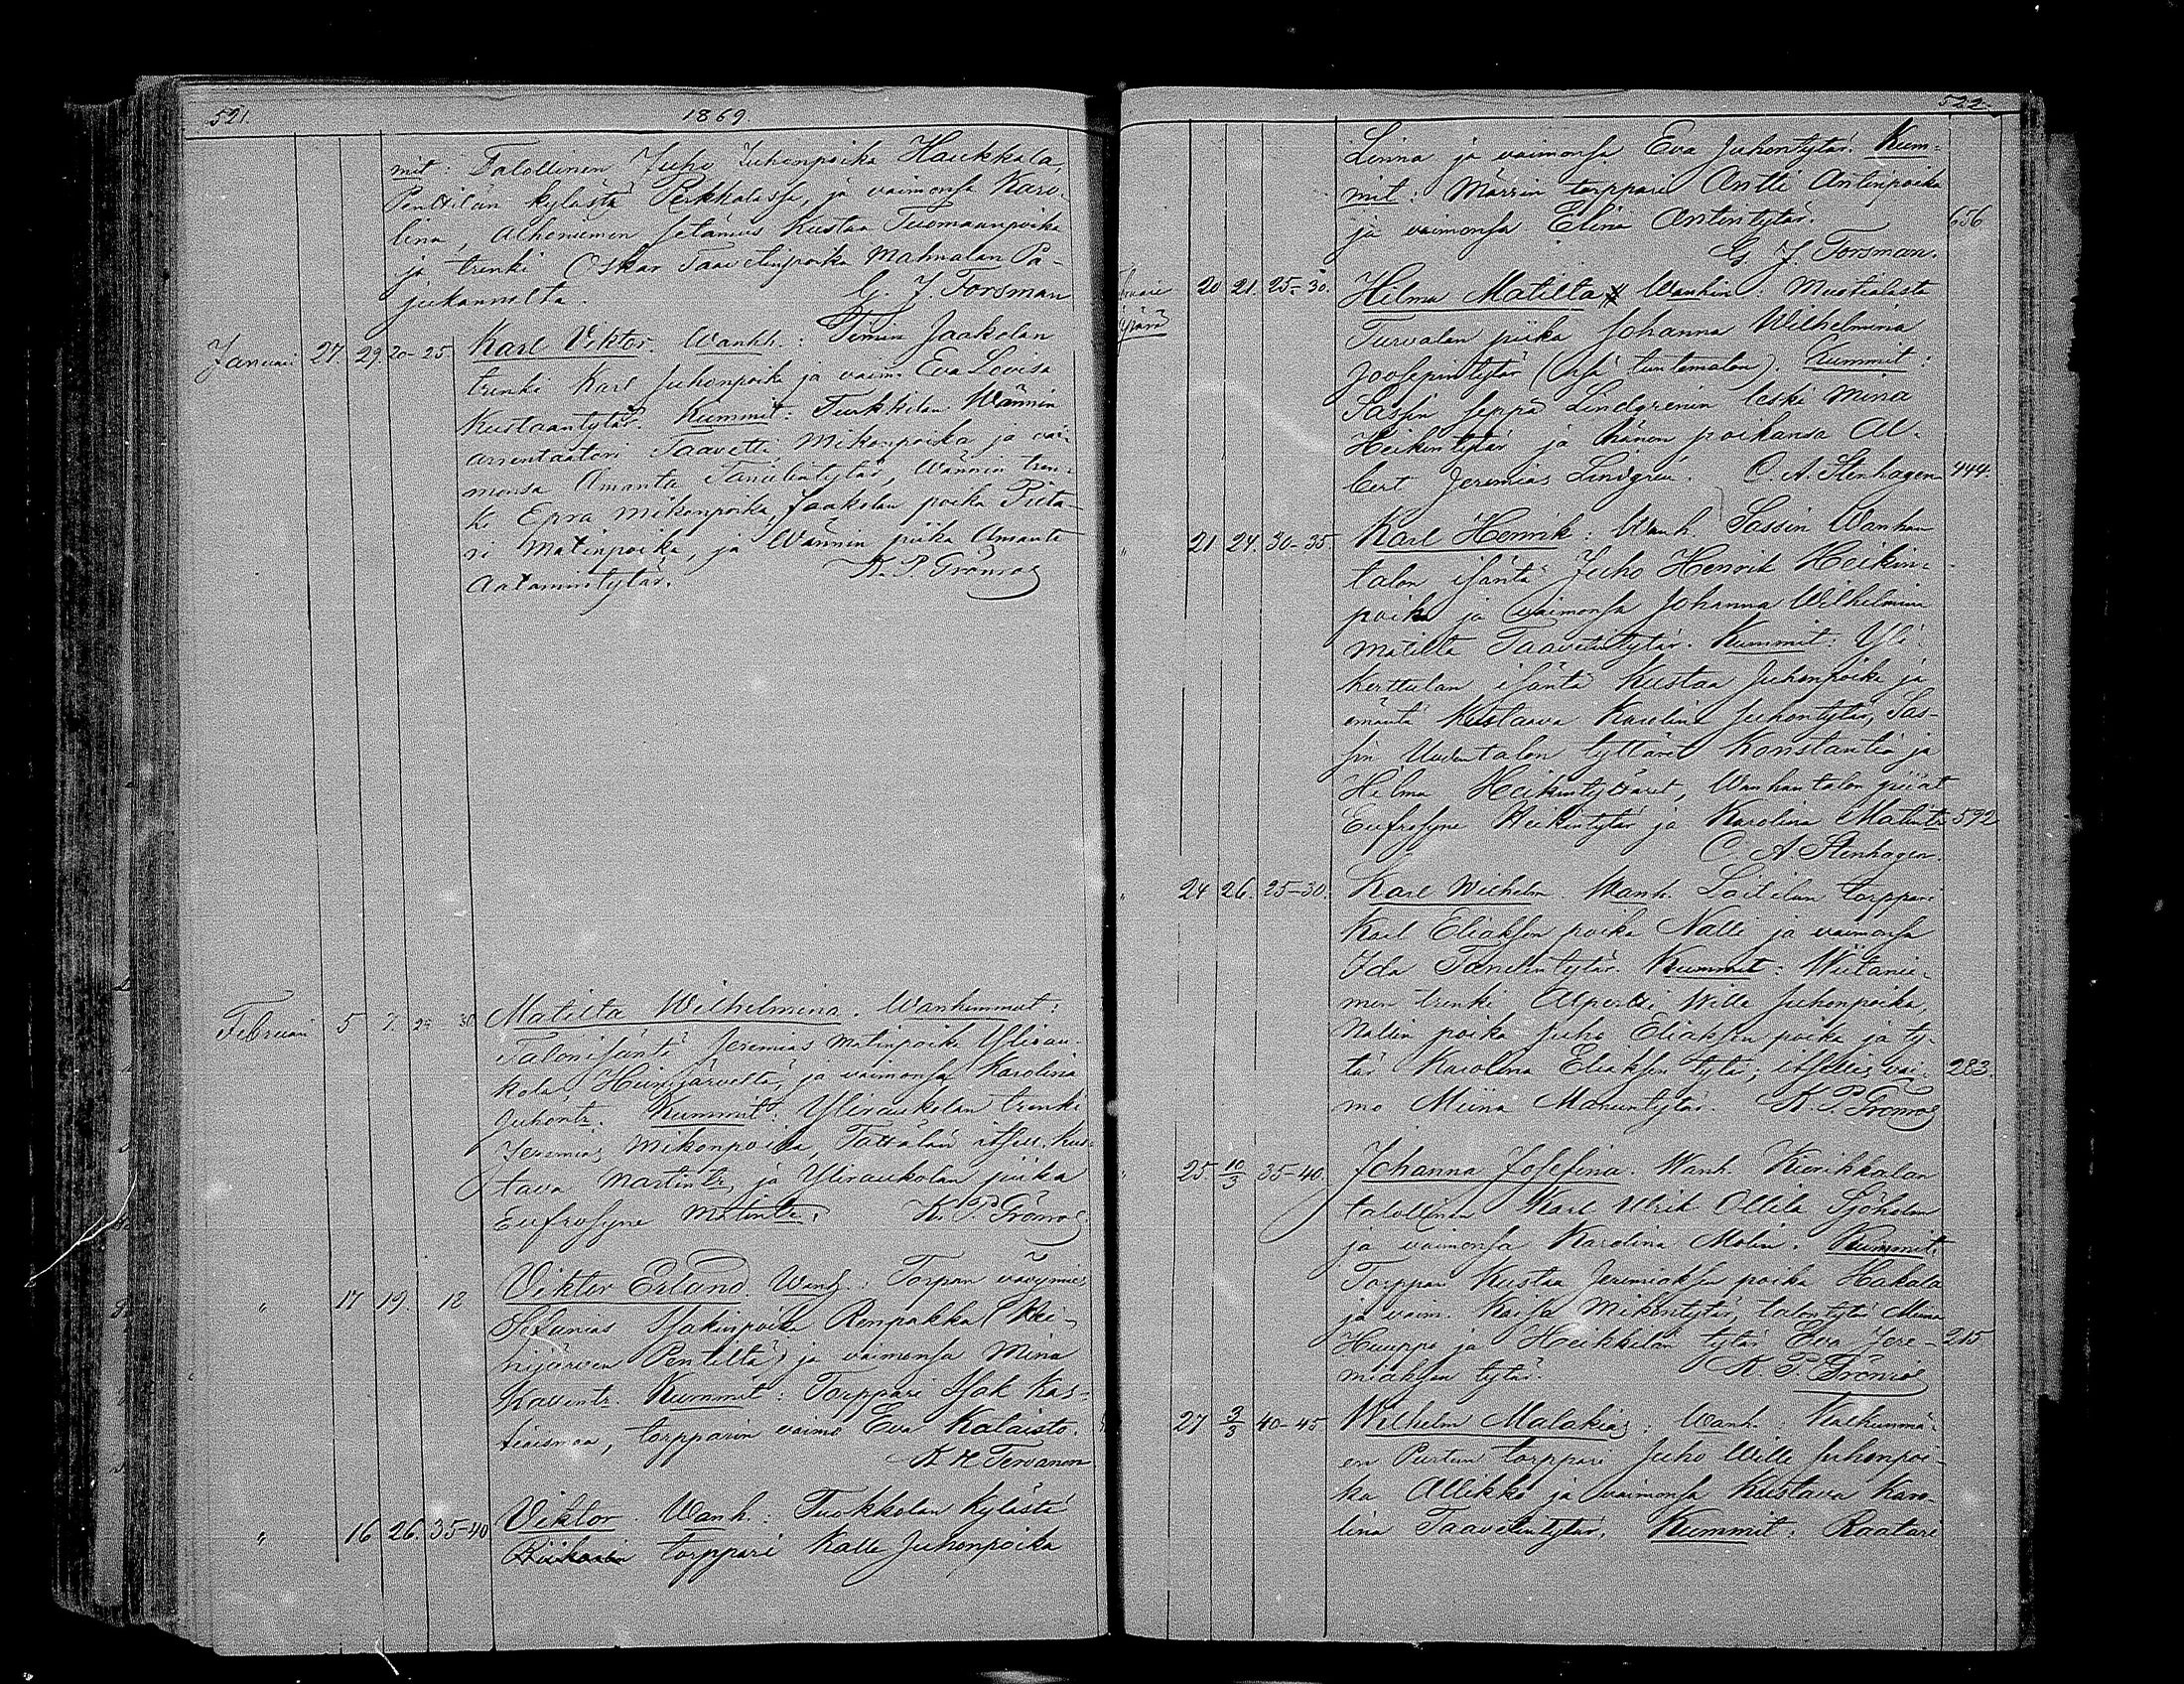 521. 1869.
mit: Talollinen Juho Juhonpoika Haukkala,
Penttilän kylästä Pirkkalassa, ja vaimonsa Karo-
lina, Alhoniemen setämies Kustaa Tuomaanpoika
ja trenki Oskar Taavetinpoika Mahnalan Pa-
jukannolta. G. J. Forsman
Januari 27 29. 20-25. Karl Viktor. Wanhh.: Timin Jaakolan
trenki Karl Juhonpoika ja vaim. Eva Lovisa
Kustaantytär. Kummit: Turkkilan Wännin
arrentaatori Taavetti Mikonpoika ja vai-
monsa Amanta Tanelintytär, Wännin tren-
ki Epra Mikonpoika, Jaakolan poika Pieta-
ri Matinpoika, ja Wännin piika Amanta
Aatamintytär. K. P. Grönroos
Februari 5 7. 25 30 Matilta Wilhelmina. Wanhemmat:
Talonisäntä Jeremias Matinpoika Ylirau-
kola, Heinijärveltä, ja vaimonsa Karolina
Juhontr. Kummit: Yliraukolan trenki
Jeremias Mikonpoika, Tattalan itsell. Kus-
tava Martintr. ja Yliraukolan piika
Eufrosyne Matintr. K. P. Grönroos
" 17 19. 18 Viktor Erland. Wanh.: Torpan vävymies
Stefanias Isakinpoika Renpakka (Hei-
nijärven Pentiltä) ja vaimonsa Mina
Kaventr. Kummit: Torppari Isak Kas-
tiaismaa, torpparin vaimo Eva Kalaisto.
K H Tervanen
" 16 26. 35-40 Viktor. Wanh.: Tuokkolan kylästä
torppari Kalle Juhonpoika
522.
Linna ja vaimonsa Eva Juhontytär. Kum-
mit: Märrin torppari Antti Antinpoika
ja vaimonsa Elina Antintytär. 656
G J. Forsman.
20 21. 25-30. Hilma Matilta. Wanhin: Mustialasta
Turvalan piika Johanna Wilhelmina
Joosepintytär (Isä tuntematon). Kummit:
Sassin seppä Lindgrenin leski Mina
Heikintytär ja hänen poikansa Al-
bert Jeremias Lindgren. C. A. Stenhagen 444.
" 21 24. 30-35. Karl Henrik: Wanh. Sassin Wanhan
talon isäntä Juho Henrik Heikin-
poika ja vaimonsa Johanna Wilhelmina
Matilta Taavetintytär. Kummit: Yli-
Kerttulan isäntä Kustaa Juhonpoika ja
emäntä Kustaava Karolina Juhontytär, Sas-
sin Uudentalon tyttäret Konstantia ja
Hilma Heikintyttäret, Wanhantalon piiat
Eufrosyne Heikintytär ja Karolina Matintr. 592
C. A Stenhagen.
" 24 26. 25-30. Karl Wilhelm. Wanh. Laitilan torppari
Karl Eliaksen poika Nalli ja vaimonsa
Ida Tanelintytär. Kummit: Wiitanie-
men trenki Alpertti Wille Juhonpoika,
Nallin poika Juho Eliaksen poika ja ty-
tär Karolina Eliaksen tytär, itsellis vai- 283.
mo Miina Manuntytär. K. P. Grönroos
" 25. 10/3 35-40. Johanna Josefina. Wanh. Kurikkalan
talollinen Karl Ulrik Ollila Sjöholm
ja vaimonsa Karolina Molin. Kummit:
Torppari Kustaa Jeremiaksen poika Hakala
ja vaim. Kaisa Mikontytär, talon tytär Miina
Huuppo ja Heikkilän tytär Eva Jere- 215
miaksen tytär. K. P. Grönroos
27 3/3 40-45. Wilhelm Malakias: Wanh.: Kalkunmä-
en Purtun torppari Juho Wille Juhonpoi-
ka Allikko ja vaimonsa Kustava Karo-
lina Taavetintytär. Kummit: Raatari